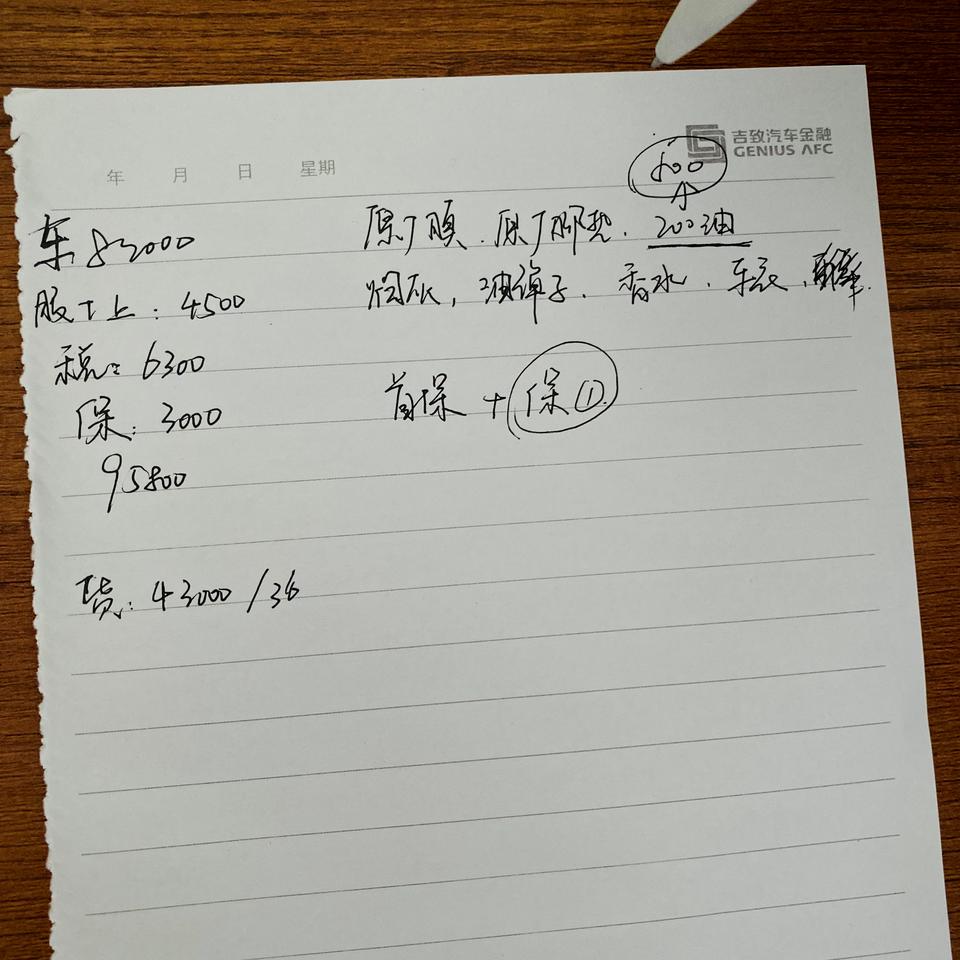 吉致汽车金融
GENIUS AFC
年 月 日 星期
车 83000
原厂膜.原厂脚垫.200油
服+上:4500
烟灰,油弹子.香水.车衣.
税:6300
保:3000
首保+保①.
95800
贷:43000/36